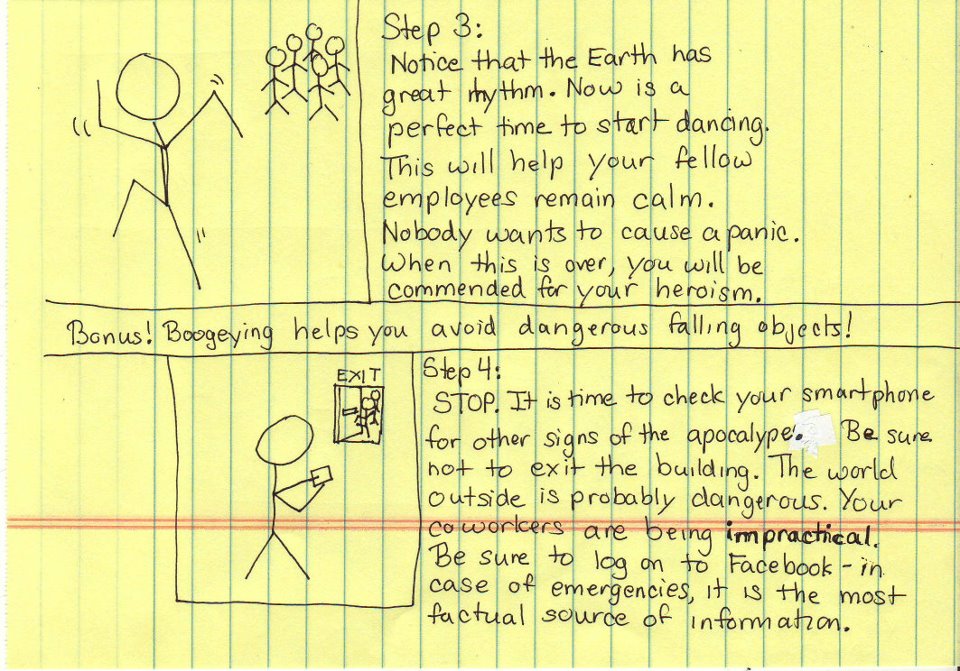 Step 3:
Notice that the Earth has
great rhythm. Now is a
perfect time to start dancing.
This will help your fellow
employees remain calm.
Nobody wants to cause a panic.
When this is over, you will be
commended for your heroism.
Bonus! Boogeying helps you avoid dangerous falling objects!
EXIT
Step 4:
STOP. It is time to check your smartphone
for other signs of the apocalypse. Be sure
not to exit the building. The world
outside is probably dangerous. Your
coworkers are being impractical.
Be sure to log on to Facebook - in
case of emergencies, it is the most
factual source of information.